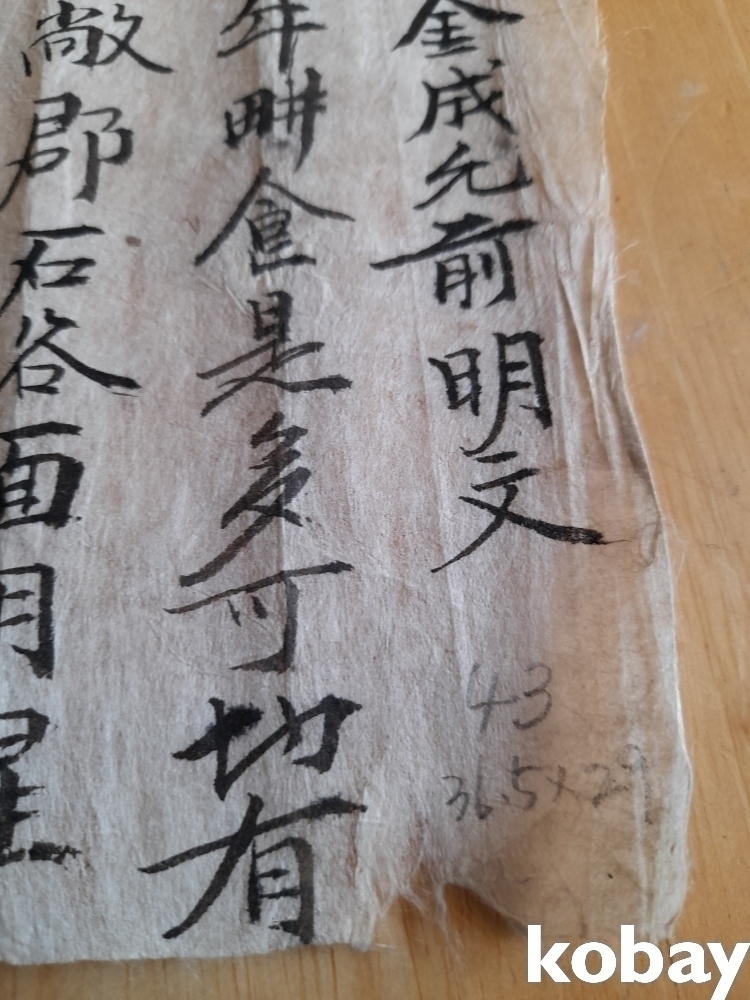 金成允前明文
年畊食是多可切有
敞郡石谷面月星
43
36.5×29
kobay